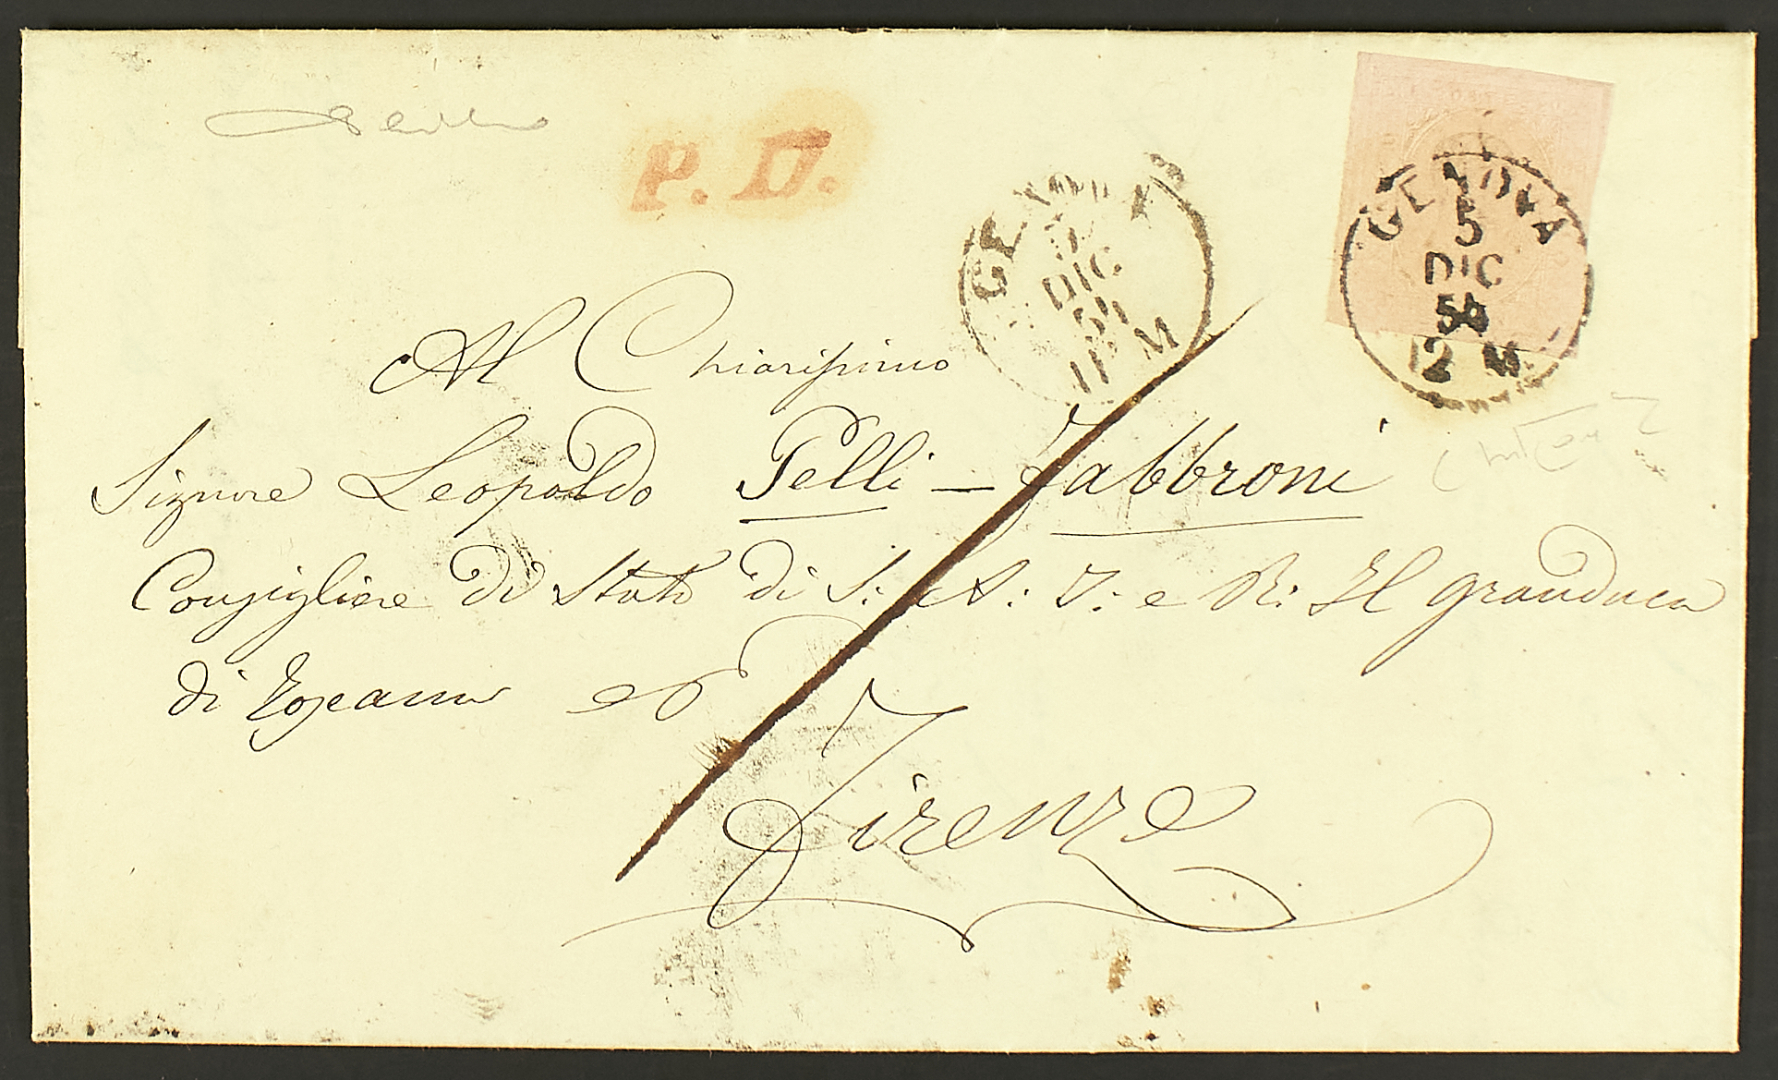 P. D.
GENOVA
DIC
54
11 M
GENOVA
5
DIC
12 M
Al Chiarissimo
Signore Leopoldo Pelli - Fabbroni
Consigliere di Stato di S: A: I: e R: Il Granduca
di Toscana
Firenze